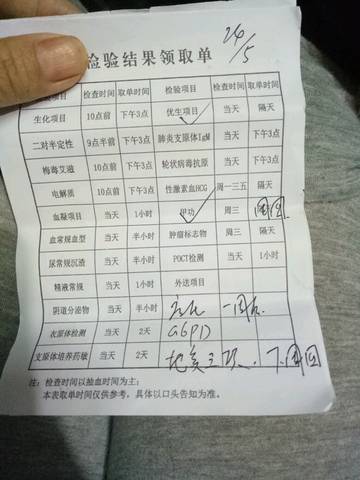 检验结果领取单
24/5
项目 检查时间 取单时间 检验项目 检查时间 取单时间
生化项目 10点前 下午3点 优生项目 当天 隔天
二对半定性 9点半前 下午3点 肺炎支原体IgM 当天 下午3点
梅毒艾滋 10点前 下午3点 轮状病毒抗原 当天 下午3点
电解质 10点前 下午3点 性激素血HCG 周一三五 隔天
血凝项目 当天 1小时 甲功 周三
血常规血型 当天 半小时 肿瘤标志物 周三 隔天
尿常规沉渣 当天 半小时 POCT检测 当天 1小时
精液常规 当天 1小时 外送项目
阴道分泌物 当天 半小时 一周后
衣原体检测 当天 2天 G6PD
支原体培养药敏 当天 2天 地贫三项
注：检查时间以抽血时间为主；
本表取单时间仅供参考，具体以口头告知为准。